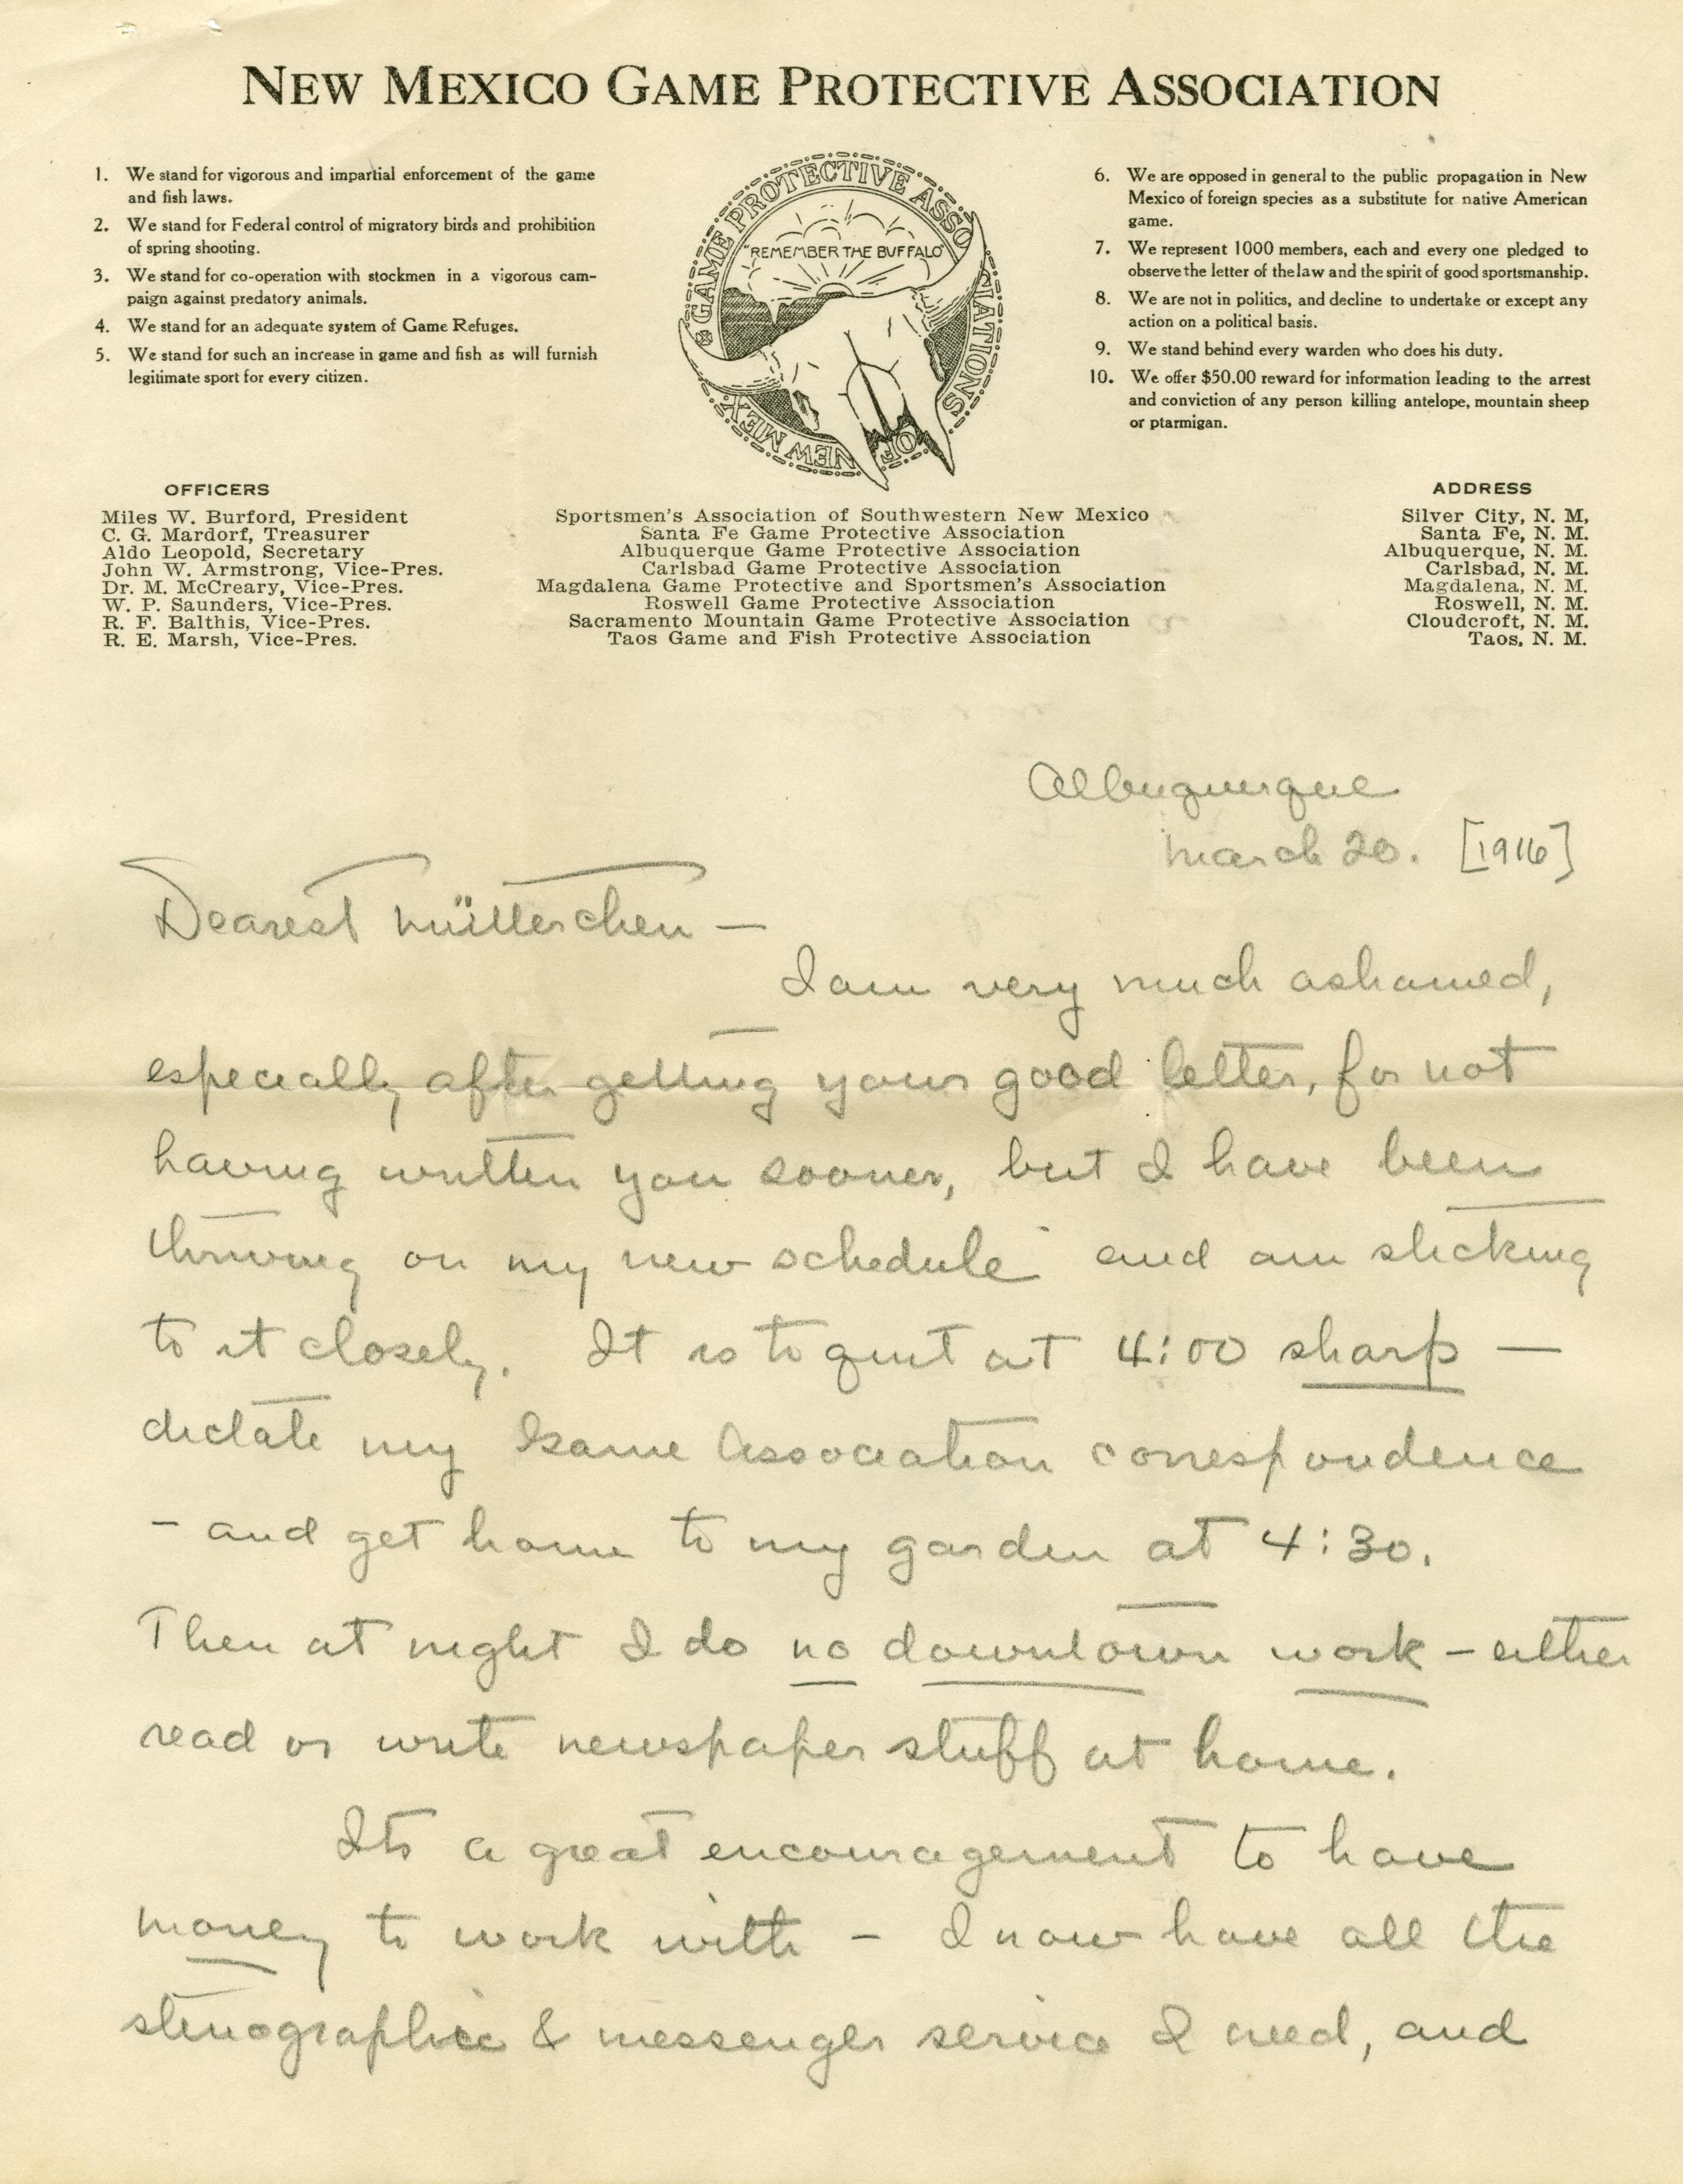 NEW MEXICO GAME PROTECTIVE ASSOCIATION
1. We stand for vigorous and impartial enforcement of the game
and fish laws.
2. We stand for Federal control of migratory birds and prohibition
of spring shooting.
3. We stand for co-operation with stockmen in a vigorous cam-
paign against predatory animals.
4. We stand for an adequate system of Game Refuges.
5. We stand for such an increase in game and fish as will furnish
legitimate sport for every citizen.
GAME PROTECTIVE ASSOCIATIONS OF NEW MEX.
"REMEMBER THE BUFFALO"
6. We are opposed in general to the public propagation in New
Mexico of foreign species as a substitute for native American
game.
7. We represent 1000 members, each and every one pledged to
observe the letter of the law and the spirit of good sportsmanship.
8. We are not in politics, and decline to undertake or except any
action on a political basis.
9. We stand behind every warden who does his duty.
10. We offer $50.00 reward for information leading to the arrest
and conviction of any person killing antelope, mountain sheep
or ptarmigan.
OFFICERS
Miles W. Burford, President
C. G. Mardorf, Treasurer
Aldo Leopold, Secretary
John W. Armstrong, Vice-Pres.
Dr. M. McCreary, Vice-Pres.
W. P. Saunders, Vice-Pres.
R. F. Balthis, Vice-Pres.
R. E. Marsh, Vice-Pres.
Sportsmen's Association of Southwestern New Mexico
Santa Fe Game Protective Association
Albuquerque Game Protective Association
Carlsbad Game Protective Association
Magdalena Game Protective and Sportsmen's Association
Roswell Game Protective Association
Sacramento Mountain Game Protective Association
Taos Game and Fish Protective Association
ADDRESS
Silver City, N. M,
Santa Fe, N. M.
Albuquerque, N. M.
Carlsbad, N. M.
Magdalena, N. M.
Roswell, N. M.
Cloudcroft, N. M.
Taos, N. M.
Albuquerque
March 20. [1916]
Dearest Mütterchen —
I am very much ashamed,
especially after getting your good letter, for not
having written you sooner, but I have been
thriving on my new schedule and am sticking
to it closely. It is to quit at 4:00 sharp —
dictate my Game Association correspondence
- and get home to my garden at 4:30.
Then at night I do no downtown work - either
read or write newspaper stuff at home.
Its a great encouragement to have
money to work with - I now have all the
stenographic & messenger service I need, and